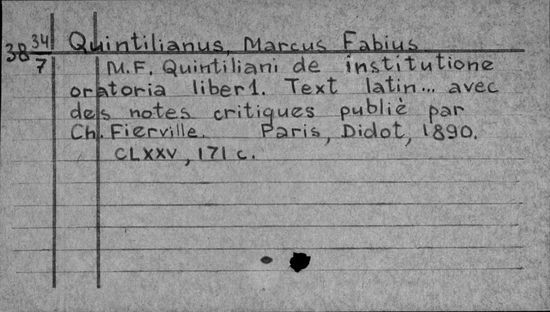 38 34/7 Quintilianus, Marcus Fabius
M.F. Quintiliani de institutione
oratoria liber 1. Text latin... avec
des notes critiques publiè par
Ch. Fierville. Paris, Didot, 1890.
CLXXV, 171 c.